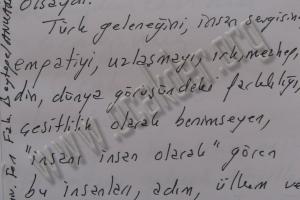 olsaydı.
Türk geleneğini, insan sevgisini
empatiyi, uzlaşmayı, ırk, mezhep,
din, dünya görüşündeki farklılığı,
çeşitlilik olarak benimseyen,
"insanı insan olarak" gören
bu insanları, adım, ülkem ve